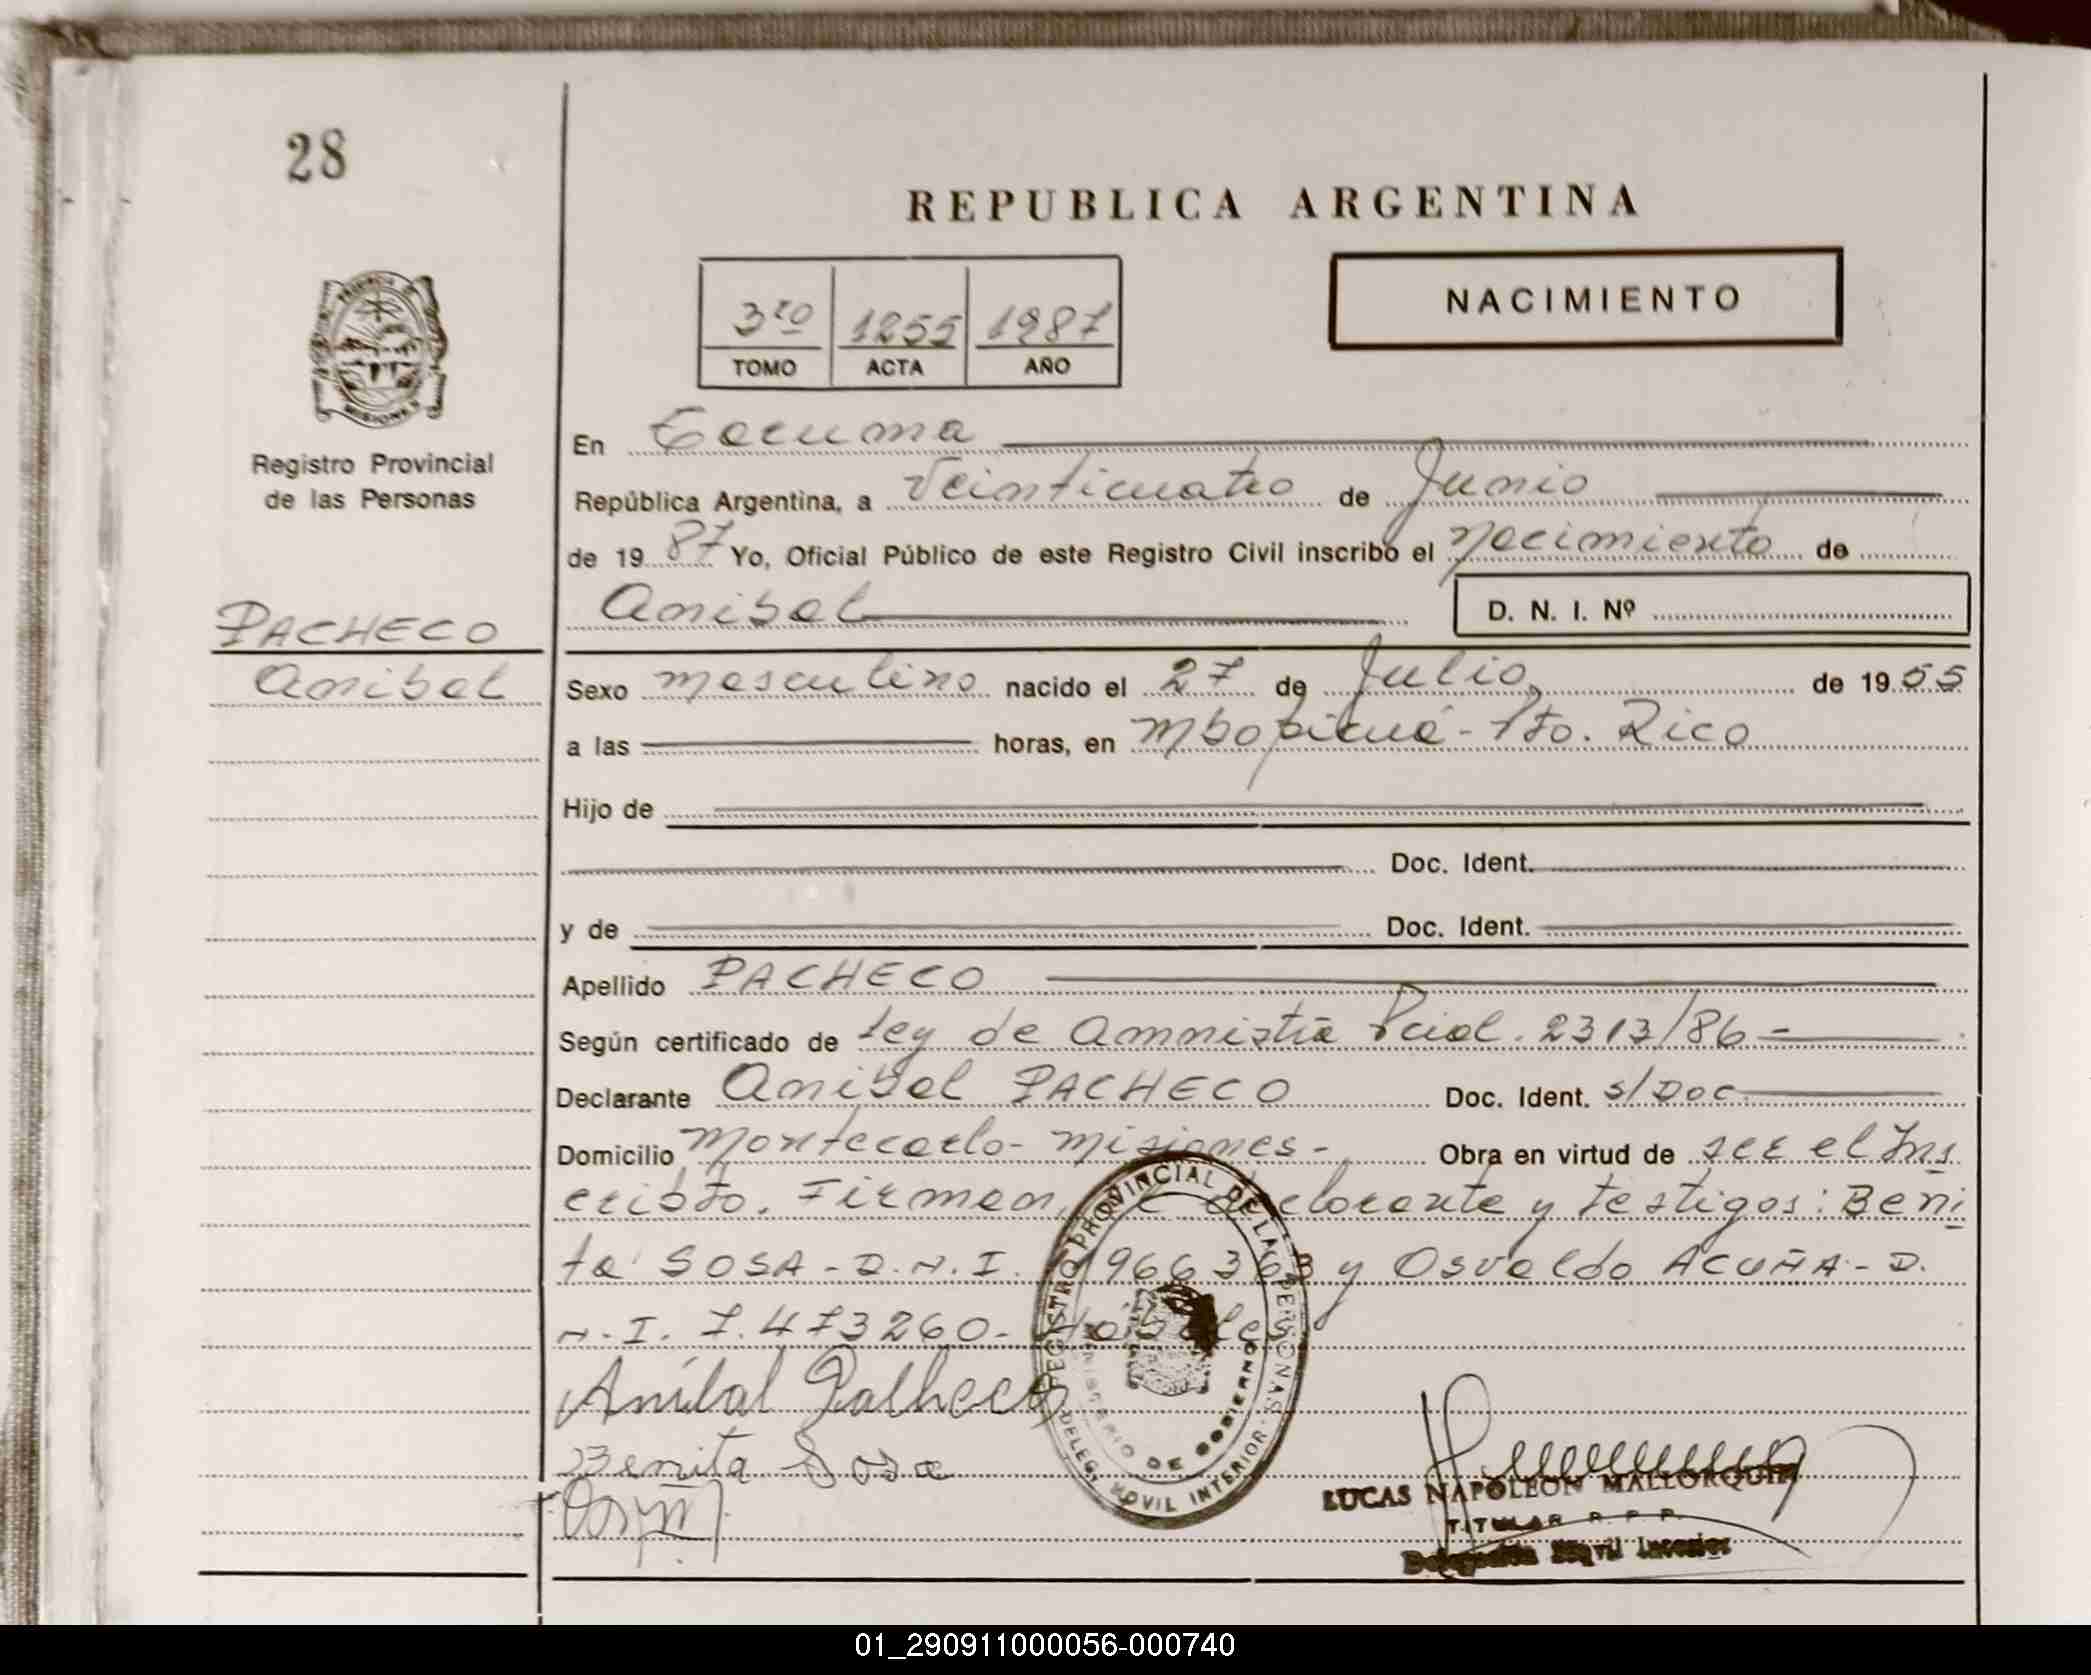 28
REPUBLICA ARGENTINA
3ro 1255 1987
TOMO ACTA AÑO
NACIMIENTO
PROVINCIA DE
MISIONES
Registro Provincial
de las Personas
PACHECO
Anibal
En
República Argentina, a Veinticuatro de Junio
de 19 87 Yo, Oficial Público de este Registro Civil inscribo el Nacimiento de
Anibal D. N. I. Nº
Sexo masculino nacido el 27 de Julio de 19 55
a las horas, en Mbopicuá - Pto. Rico
Hijo de
Doc. Ident.
y de Doc. Ident.
Apellido PACHECO
Según certificado de Ley de Amnistía Pcial. 2313/86 -
Declarante Anibal PACHECO Doc. Ident. s/Doc
Domicilio Montecarlo - Misiones - Obra en virtud de ser el Ins
cripto. Firman, declarante y testigos: Beni
ta SOSA - D.N.I. y Osvaldo ACUÑA - D.
N.I. 7.473260 - Hábiles
Aníbal Pacheco
Benita Sosa
REGISTRO PROVINCIAL DE LAS PERSONAS
MINISTERIO DE GOBIERNO
DELEG. MOVIL INTERIOR
LUCAS NAPOLEON MALLORQUIN
TITULAR R. P. P.
Delegación Móvil Interior
01_290911000056-000740